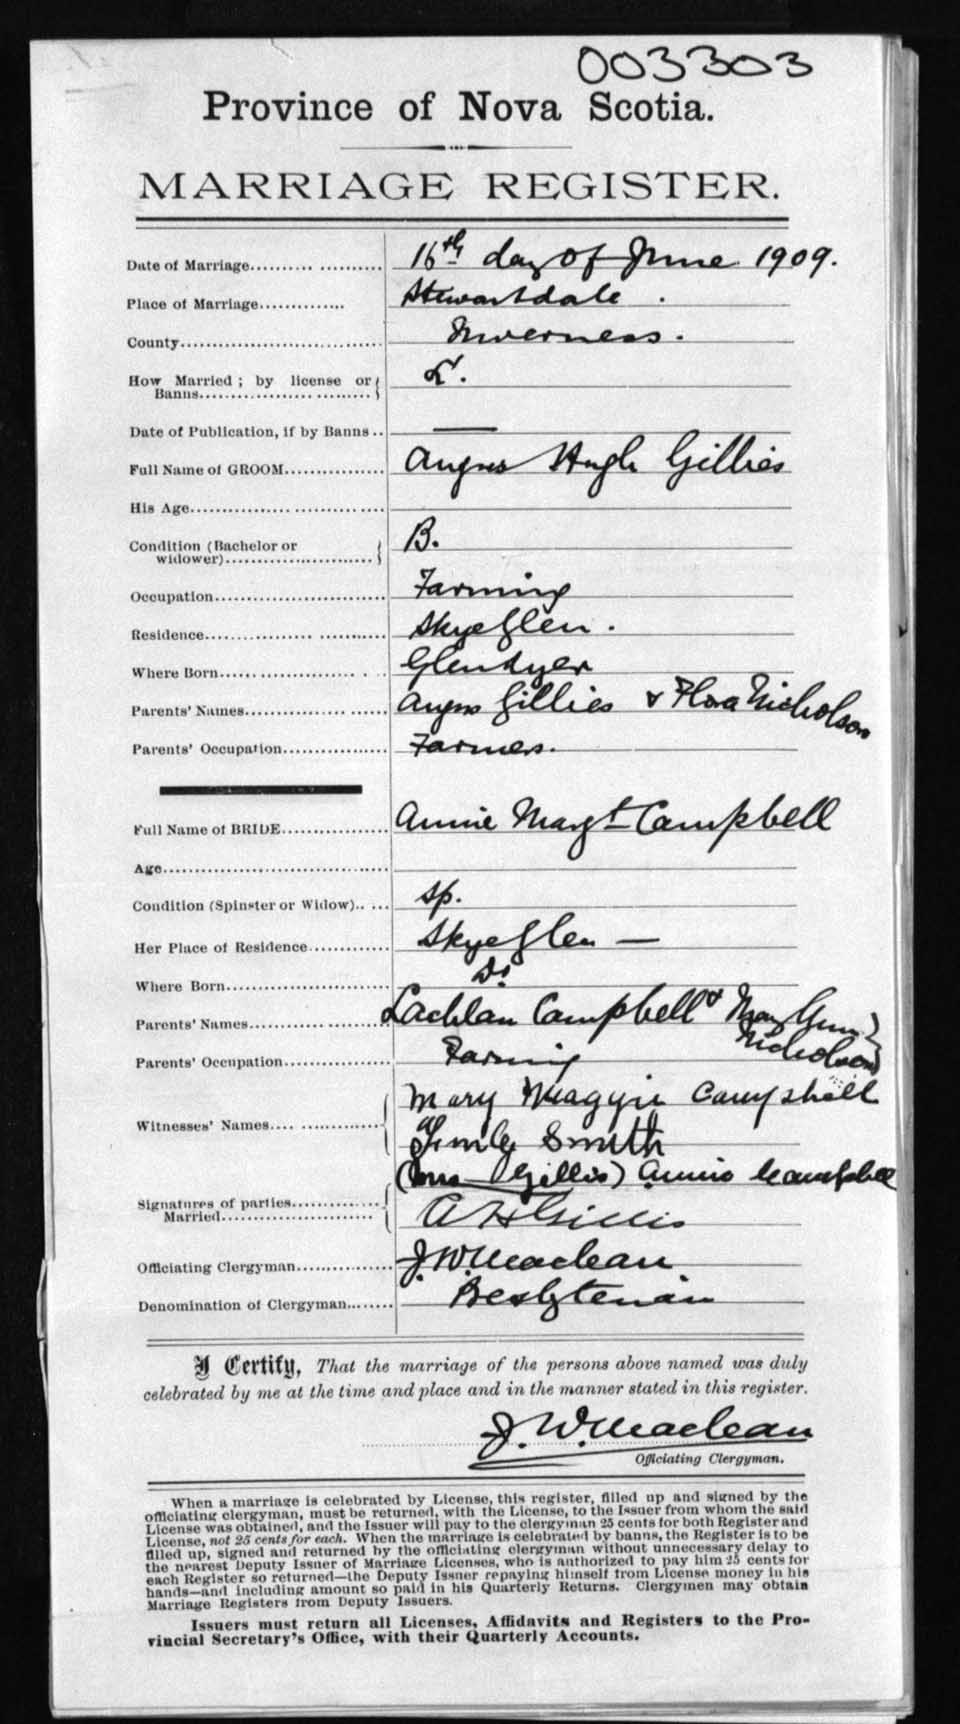 003303
Province of Nova Scotia.
MARRIAGE REGISTER.
Date of Marriage 16th day of June 1909.
Place of Marriage Stewartdale.
County Inverness.
How Married; by license or Banns L.
Date of Publication, if by Banns —
Full Name of GROOM Angus Hugh Gillies
His Age
Condition (Bachelor or widower) B.
Occupation Farming
Residence Skye Glen.
Where Born Glendyer
Parents' Names Angus Gillies & Flora Nicholson
Parents' Occupation Farmers.
Full Name of BRIDE Annie Margt Campbell
Age
Condition (Spinster or Widow) Sp.
Her Place of Residence Skye Glen —
Where Born Do
Parents' Names Lachlan Campbell & Mary Ann Nicholson
Parents' Occupation Farming
Witnesses' Names Mary Maggie Campbell
Smith
(Mrs Gillis) Annie Campbell
Signatures of parties Married A H Gillis
Officiating Clergyman J. W. Maclean
Denomination of Clergyman Presbyterian
I Certify, That the marriage of the persons above named was duly
celebrated by me at the time and place and in the manner stated in this register.
J. W. Maclean
Officiating Clergyman.
When a marriage is celebrated by License, this register, filled up and signed by the
officiating clergyman, must be returned, with the License, to the Issuer from whom the said
License was obtained, and the Issuer will pay to the clergyman 25 cents for both Register and
License, not 25 cents for each. When the marriage is celebrated by banns, the Register is to be
filled up, signed and returned by the officiating clergyman without unnecessary delay to
the nearest Deputy Issuer of Marriage Licenses, who is authorized to pay him 25 cents for
each Register so returned—the Deputy Issuer repaying himself from License money in his
hands—and including amount so paid in his Quarterly Returns. Clergymen may obtain
Marriage Registers from Deputy Issuers.
Issuers must return all Licenses, Affidavits and Registers to the Pro-
vincial Secretary's Office, with their Quarterly Accounts.